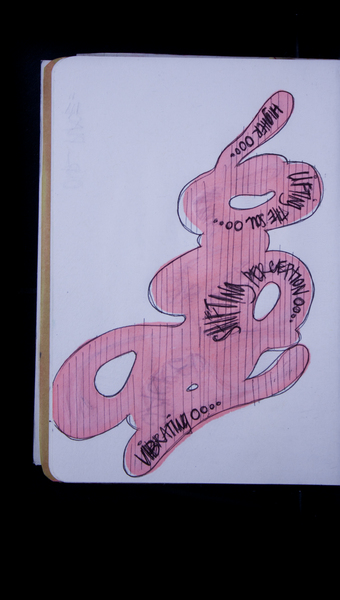 HIGHER OOOO...
LIFTING THE SOUL OO...
SHIFTING PERCEPTION OO...
VIBRATING OO...